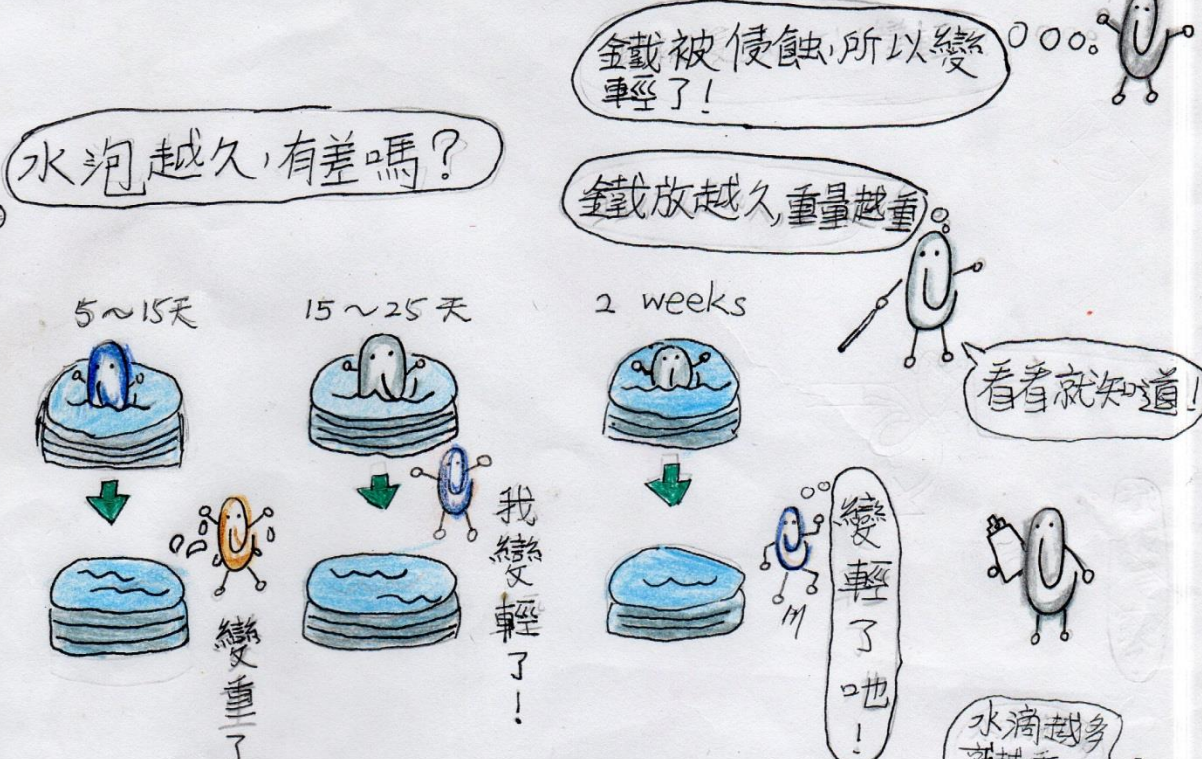 鐵被侵蝕,所以變
輕了!
水泡越久,有差嗎?
鐵放越久,重量越重
5~15天
15~25天
2 weeks
看看就知道!
變重了
我變輕了!
變輕了吔!
水滴越多